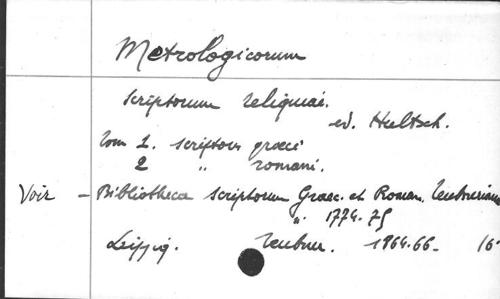 Metrologicorum
scriptorum reliquiae.
ed. Hultsch.
Tom 1. scriptores graeci
2 " romani.
Voir - Bibliotheca scriptorum Graec. et Roman. Teubneriana
" 1774.75
Leipzig. Teubner. 1864.66. 16°